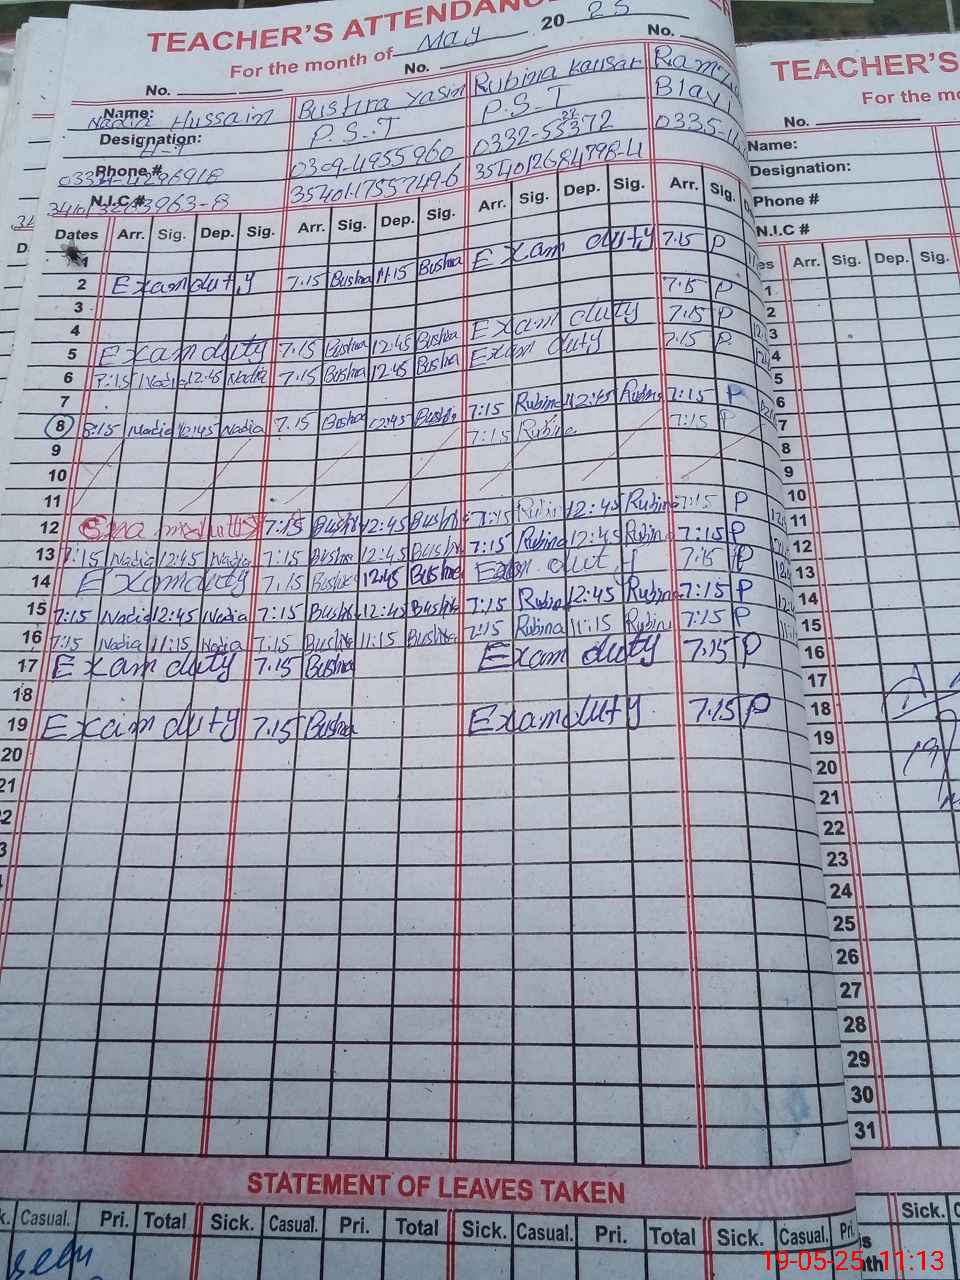 TEACHER'S ATTENDANC
For the month of May 20 25
No. No. No.
Name: Nadia Hussain Bushra Yasin Rubina Kausar
Designation: H-T P.S.T P.S.T
Phone # 0309-4955960 0332-5537372
N.I.C # 35401-1755749-6 354012684798-4
Dates Arr. Sig. Dep. Sig. Arr. Sig. Dep. Sig. Arr. Sig. Dep. Sig. Arr. Sig.
1 Exam duty 7.15 P
2 Exam duty 7.15 Bushra 11.15 Bushra 7.15 P
3
4 Exam duty 7.15 P
5 Exam duty 7.15 Bushra 12:45 Bushra Exam duty 7.15 P
6 7:15 Nadia 12:45 Nadia 7.15 Bushra 12:45 Bushra
7 7:15 Rubina 12:45 Rubina 7:15 P
8 8:15 Nadia 12:45 Nadia 7.15 Bushra 12:45 Bushra 7:15 Rubina 7:15 P
9
10
11
12 7:15 Bushra 12:45 Bushra 7:15 Rubina 12:45 Rubina 7:15 P
13 7:15 Nadia 12:45 Nadia 7:15 Bushra 12:45 Bushra 7:15 Rubina 12:45 Rubina 7:15 P
14 Exam duty 7.15 Bushra 12:45 Bushra Exam duty 7:15 P
15 7:15 Nadia 12:45 Nadia 7:15 Bushra 12:45 Bushra 7:15 Rubina 12:45 Rubina 7:15 P
16 7:15 Nadia 11:15 Nadia 7:15 Bushra 11:15 Bushra 7:15 Rubina 11:15 Rubina 7:15 P
17 Exam duty 7.15 Bushra Exam duty 7.15 P
18
19 Exam duty 7.15 Bushra Exam duty 7.15 P
20
21
STATEMENT OF LEAVES TAKEN
Casual. Pri. Total Sick. Casual. Pri. Total Sick. Casual. Pri. Total Sick. Casual. Pri.
TEACHER'S
For the mo
No.
Name:
Designation:
Phone #
N.I.C #
Arr. Sig. Dep. Sig.
1
2
3
4
5
6
7
8
9
10
11
12
13
14
15
16
17
18
19
20
21
22
23
24
25
26
27
28
29
30
31
Sick.
19-05-25 11:13